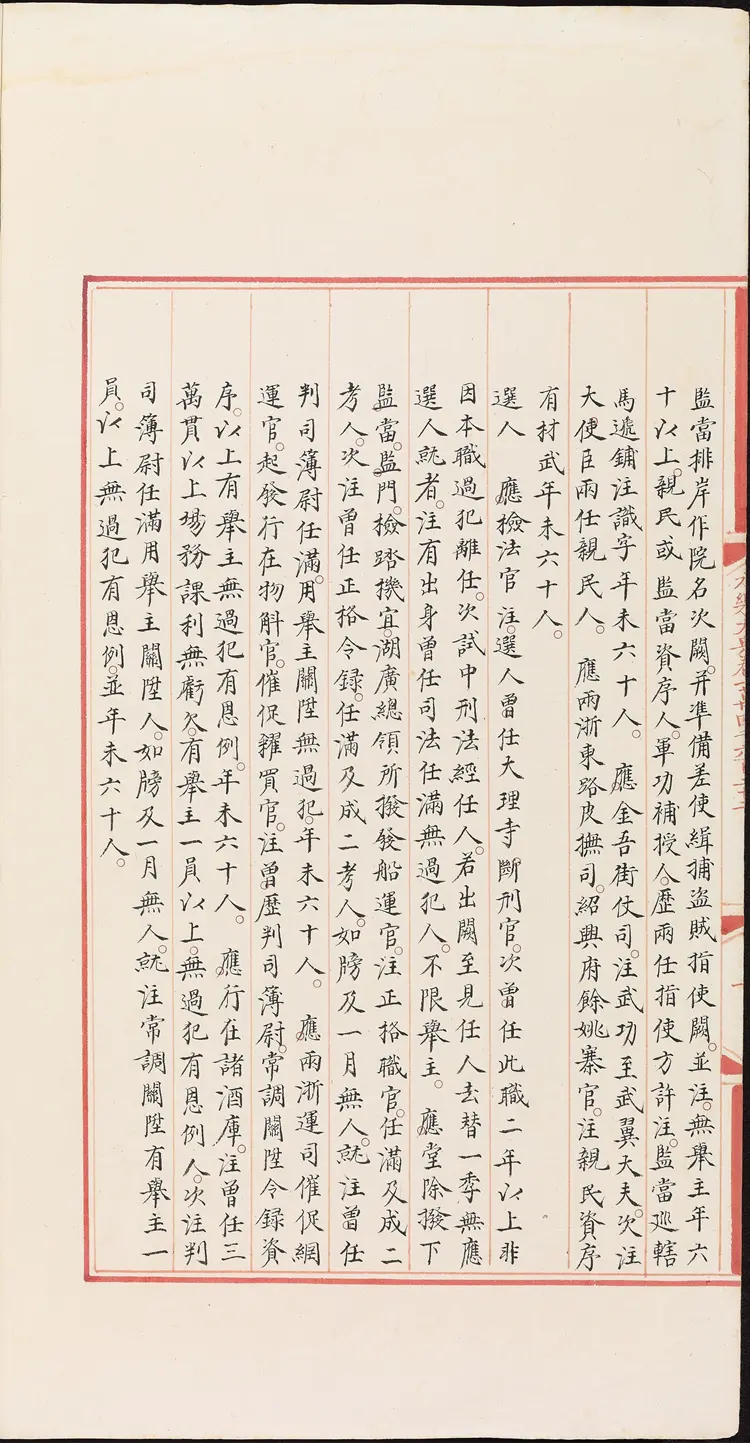 監當排岸作院名次闕。并準備差使緝捕盜賊指使闕。並注。無舉主年六
十以上。親民或監當資序人。軍功補授人。歷兩任指使方許注。監當廵轄
馬遞鋪注識字年未六十人。　應金吾街仗司。注武功至武翼大夫。次注
大使臣兩任親民人。　應兩浙東路安撫司。紹興府餘姚寨官。注親民資序
有材武年未六十人。
選人　應檢法官注。選人曾任大理寺斷刑官。次曾任此職二年以上非
因本職過犯離任。次試中刑法經任人。若出闕至見任人去替一季無應
選人就者。注有出身曾任司法任滿無過犯人。不限舉主。應堂除撥下
監當。監門。檢踏機宜。湖廣總領所撥發船運官。注正格職官。任滿及成二
考人。次注曾任正格令録。任滿及成二考人。如牓及一月無人。就注曾任
判司簿尉任滿。用舉主關陞無過犯。年未六十人。　應兩浙運司催促綱
運官。起發行在物斛官。催促糴買官。注曾歷判司簿尉。常調關陞令録資
序。以上有舉主無過犯有恩例。年未六十人。　應行在諸酒庫。注曾任三
萬貫以上場務課利無虧欠。有舉主一員以上。無過犯有恩例人。次注判
司簿尉任滿用舉主關陞人。如牓及一月無人。就注常調關陞有舉主一
員。以上無過犯有恩例。並年未六十人。